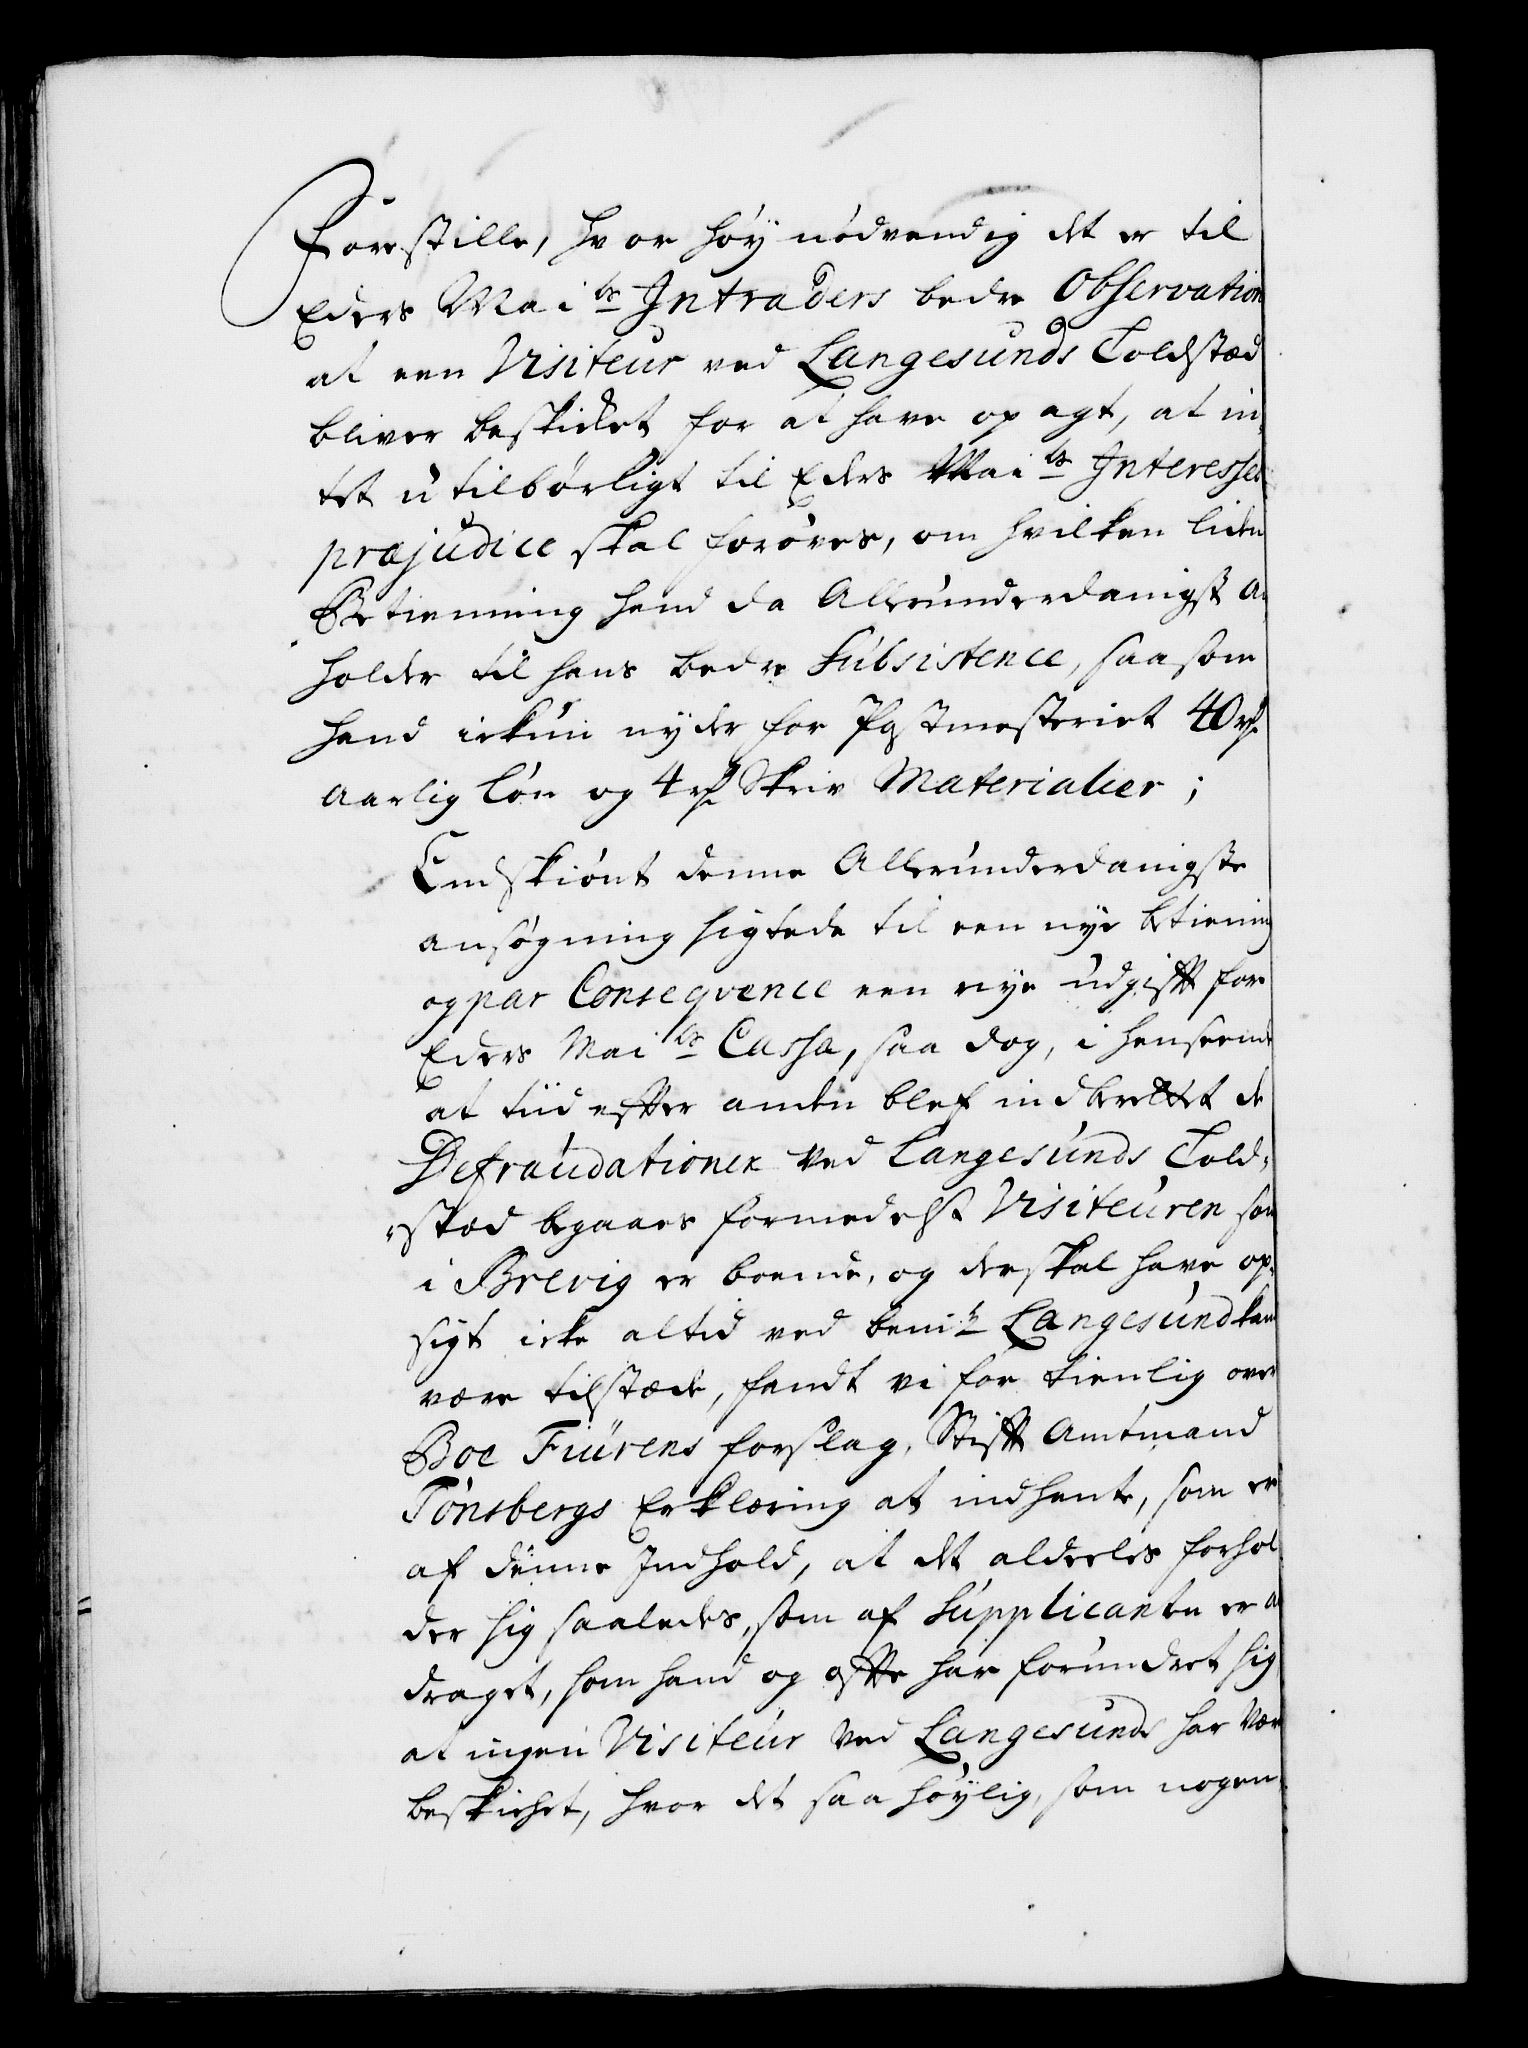 Forestille, hvor høy nødvendig det er til
Eders Mai ts Intraders bedre Observation
at een Visiteur ved Langesunds Toldstæd
bliver beskicket for at have op agt, at in,
tet utilbørligt til Eders Mai ts Interesses
præjudice skal forøves, om hvilken liden
Betienning hand da Allerunderdanigst an
holder til hans bedre Subsistence, saa som
hand ickun nyder for Postmesteriet 40 rd
Aarlig Løn og 4 rd Skriv Materialier;
Endskiønt denne Allerunderdanigste
ansøgning sigtede til een nye betiening
og par Conseqvence een nye udgifft for
Eders Mai ts Cassa, saa dog, i henseende
at tiid effter anden blef indberettet de
Defraudationer ved Langesunds Told,
stæd begaaes formedelst Visiteuren som
i Brevig er boende, og der skal have op,
sigt icke altid ved bem te Langesund kand
være tilstæde, fandt vi for tienlig over
Boe Fiurens forslag, Stifft Amtmand
Tønsbergs Erklæring at indhente, som er
af denne Indhold, at det aldeeles forhol
der sig saaledes, som af Supplicanten er an
draget, som hand og offte har forundret sig
at ingen Visiteur ved Langesunds har vær
beskicket, hvor det saa høylig, som nogen